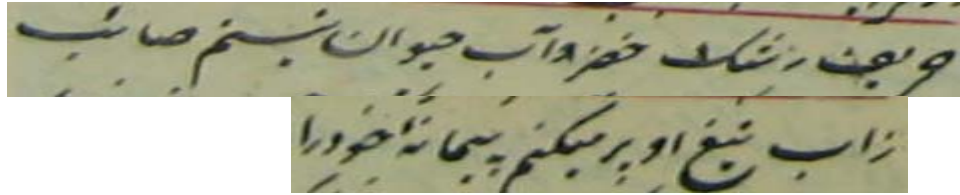 حریف رشک خضر و آب حیوان نیستم صائب
ز آب تیغ او پر میکنم پیمانهٔ خود را